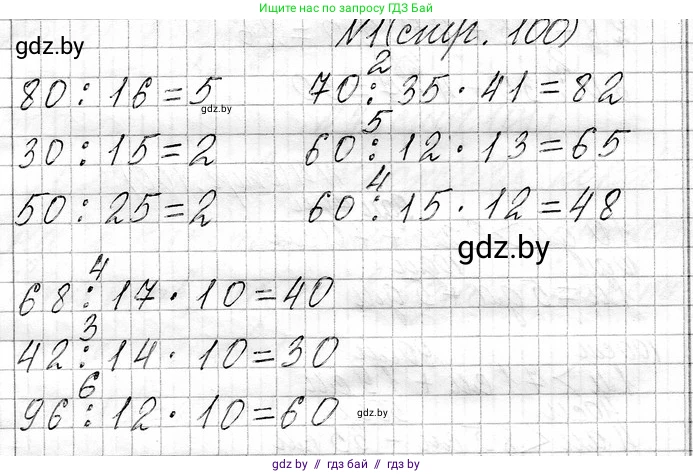 Ищите нас по запросу ГДЗ Бай
gdz.by
№1(стр. 100)
80 : 16 = 5
gdz.by
2
70 : 35 · 41 = 82
30 : 15 = 2
5
60 : 12 · 13 = 65
50 : 25 = 2
4
60 : 15 · 12 = 48
gdz.by
4
68 : 17 · 10 = 40
3
42 : 14 · 10 = 30
6
96 : 12 · 10 = 60
gdz.by
gdz.by // гдз бай // gdz by